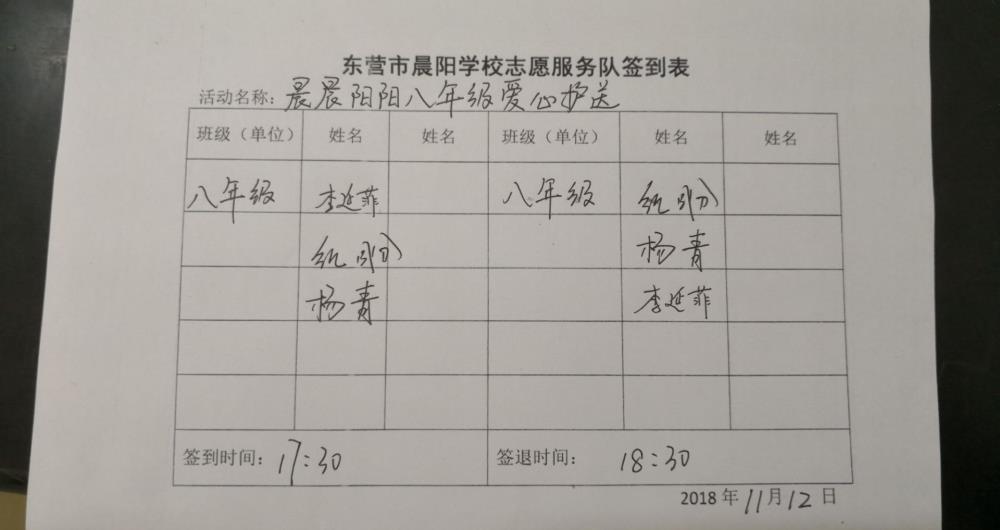 东营市晨阳学校志愿服务队签到表
活动名称：晨晨阳阳八年级爱心护送
班级（单位） 姓名 姓名 班级（单位） 姓名 姓名
八年级 李延菲 八年级 纪
纪 杨青
杨青 李延菲
签到时间：17:30 签退时间： 18:30
2018年11月12日